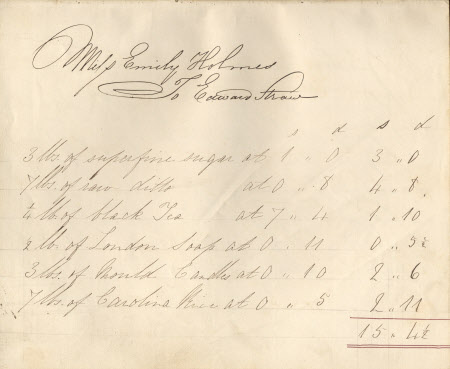 Miss Emily Holmes
To Edward Straw
s d s d
3 lbs of superfine sugar at 1 " 0 3 " 0
7 lbs of raw ditto at 0 " 8 4 " 8
¼ lb of black Tea at 7 " 4 1 " 10
½ lb of London Soap at 0 " 11 0 " 5½
3 lbs of Mould Candles at 0 " 10 2 " 6
7 lbs of Carolina Rice at 0 " 5 2 " 11
15 " 4½